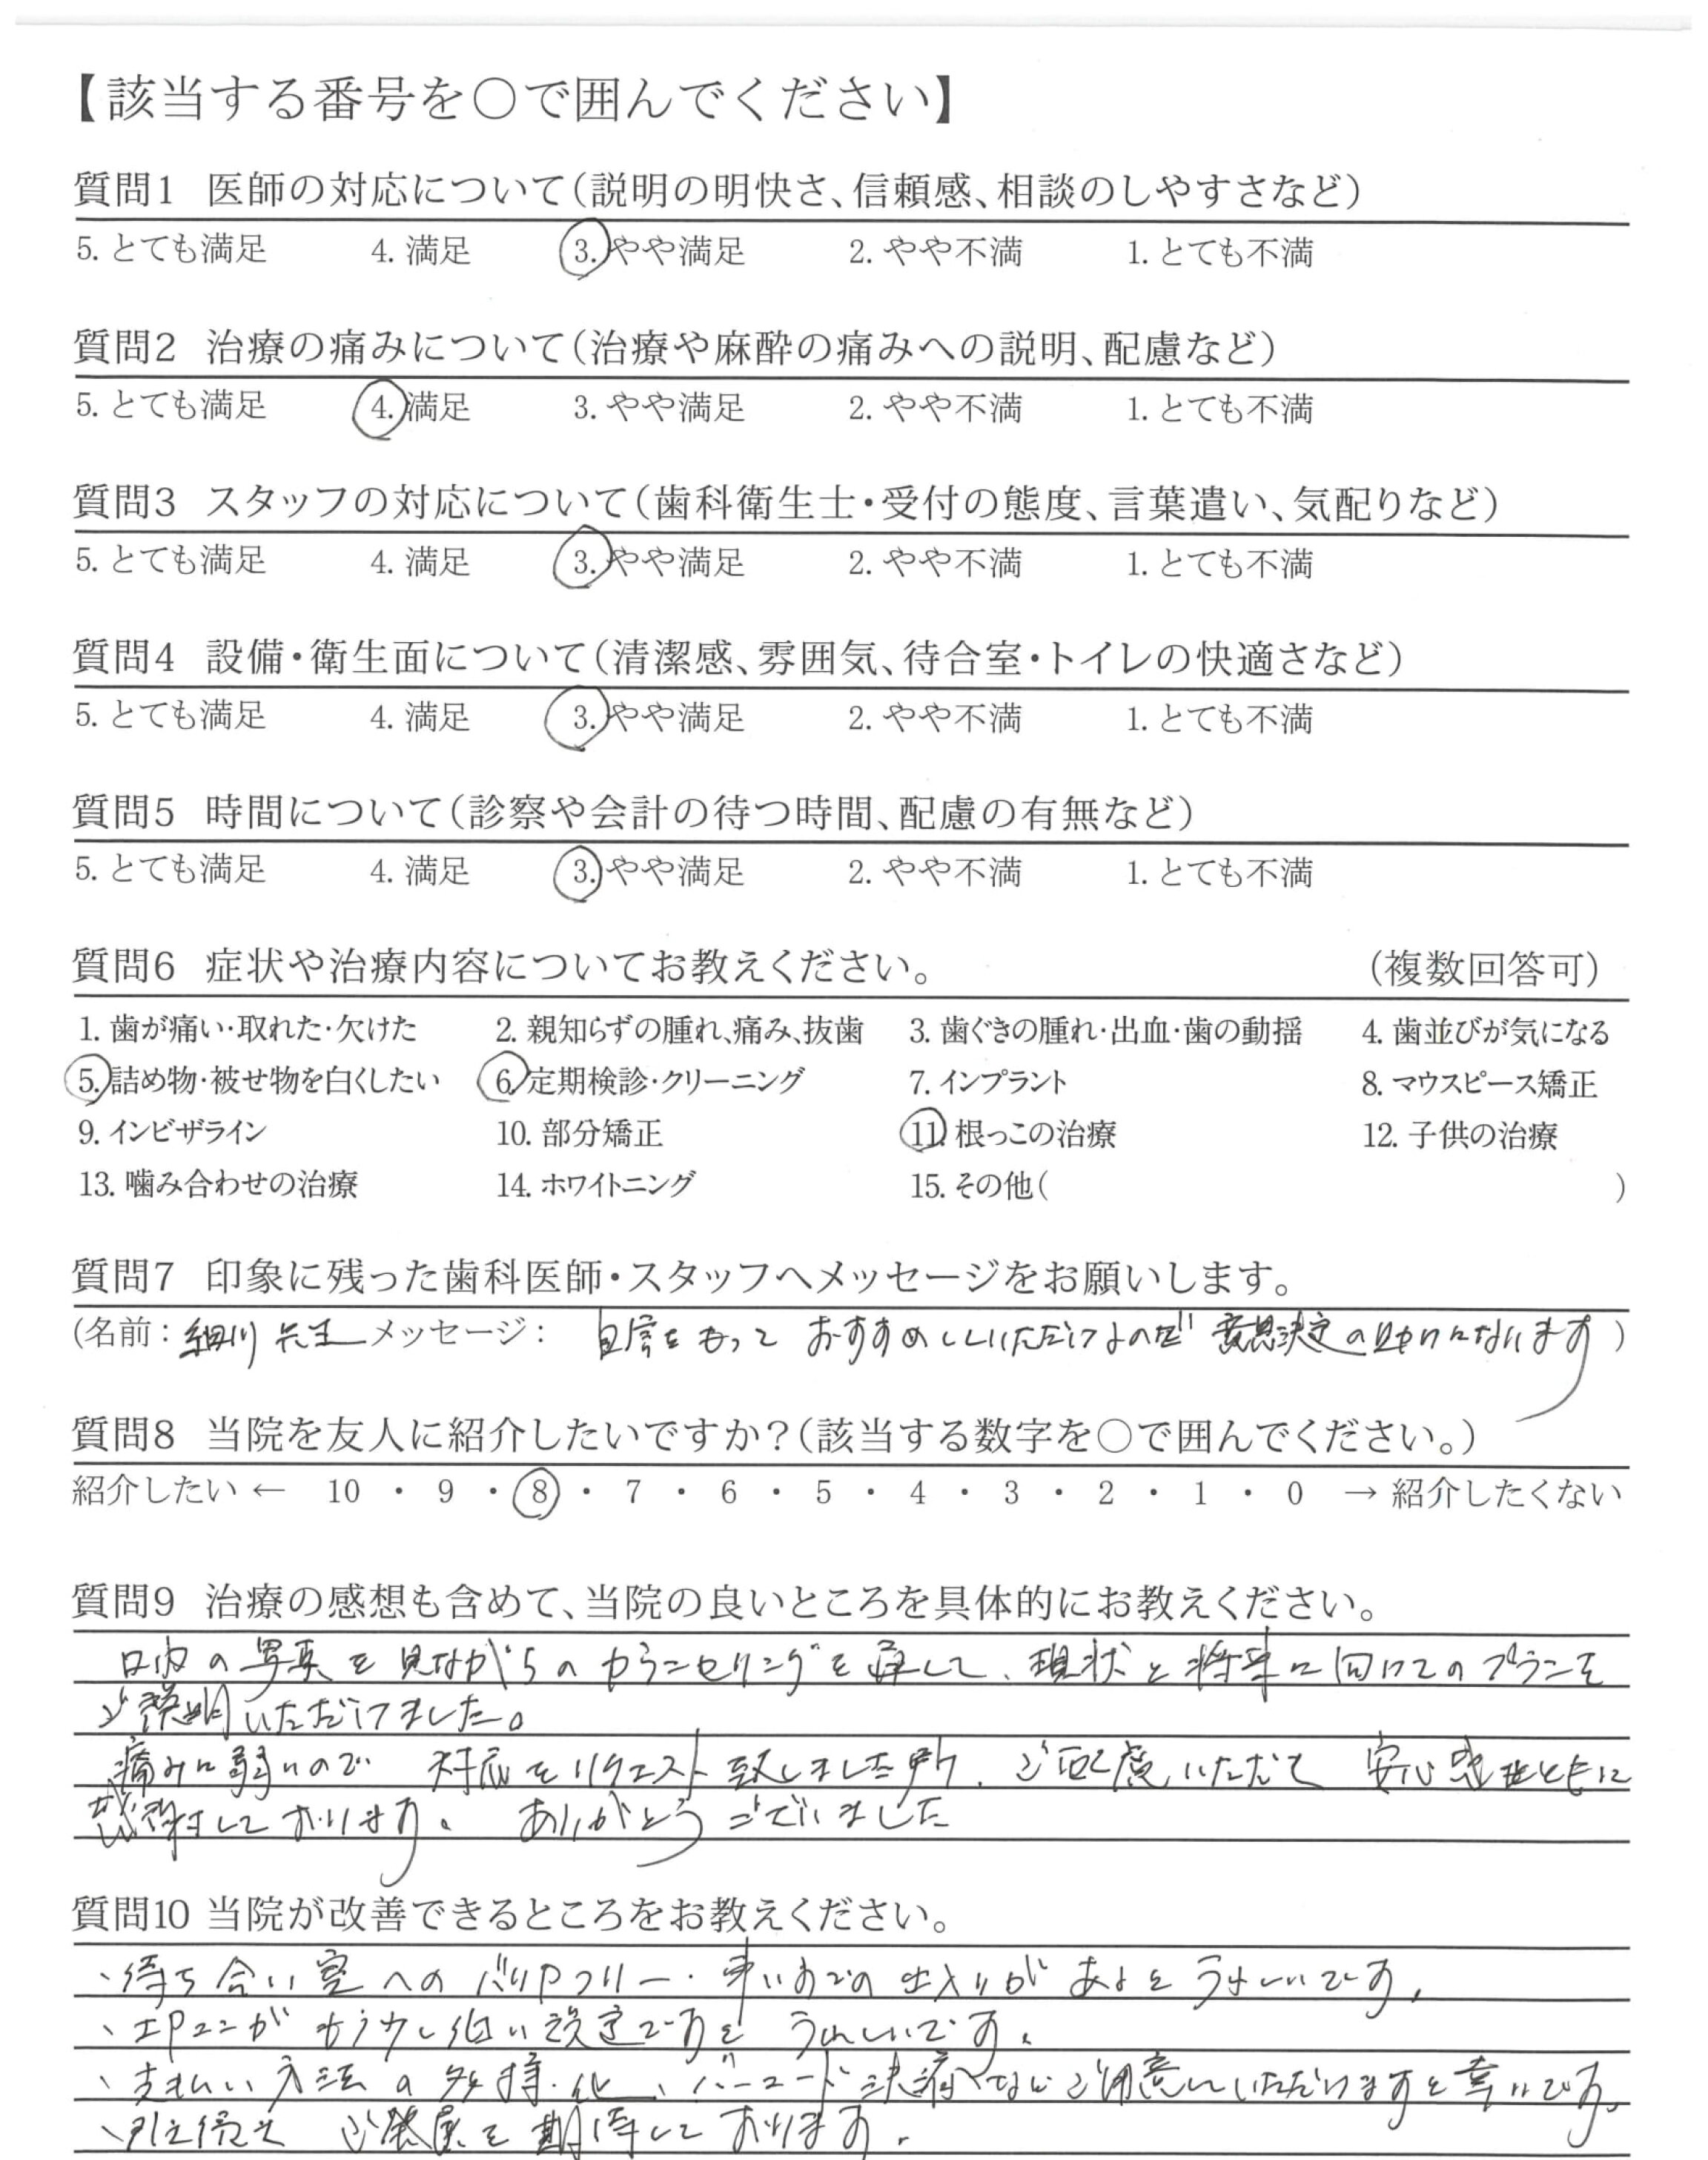 【該当する番号を○で囲んでください】
質問1 医師の対応について(説明の明快さ、信頼感、相談のしやすさなど)
5. とても満足 4. 満足 3. やや満足 2. やや不満 1. とても不満
質問2 治療の痛みについて(治療や麻酔の痛みへの説明、配慮など)
5. とても満足 4. 満足 3. やや満足 2. やや不満 1. とても不満
質問3 スタッフの対応について(歯科衛生士・受付の態度、言葉遣い、気配りなど)
5. とても満足 4. 満足 3. やや満足 2. やや不満 1. とても不満
質問4 設備・衛生面について(清潔感、雰囲気、待合室・トイレの快適さなど)
5. とても満足 4. 満足 3. やや満足 2. やや不満 1. とても不満
質問5 時間について(診察や会計の待つ時間、配慮の有無など)
5. とても満足 4. 満足 3. やや満足 2. やや不満 1. とても不満
質問6 症状や治療内容についてお教えください。 (複数回答可)
1. 歯が痛い・取れた・欠けた 2. 親知らずの腫れ、痛み、抜歯 3. 歯ぐきの腫れ・出血・歯の動揺 4. 歯並びが気になる
5. 詰め物・被せ物を白くしたい 6. 定期検診・クリーニング 7. インプラント 8. マウスピース矯正
9. インビザライン 10. 部分矯正 11. 根っこの治療 12. 子供の治療
13. 噛み合わせの治療 14. ホワイトニング 15. その他( )
質問7 印象に残った歯科医師・スタッフへメッセージをお願いします。
(名前: 細川先生 メッセージ: 自信をもっておすすめしていただけるので 意思決定の助けになります )
質問8 当院を友人に紹介したいですか?(該当する数字を○で囲んでください。)
紹介したい ← 10 ・ 9 ・ 8 ・ 7 ・ 6 ・ 5 ・ 4 ・ 3 ・ 2 ・ 1 ・ 0 → 紹介したくない
質問9 治療の感想も含めて、当院の良いところを具体的にお教えください。
口内の写真を見ながらのカウンセリングを通して、現状と将来に向けてのプランを
ご説明いただけました。
痛みに弱いので 対応をリクエスト致しました所、ご配慮いただき 安心感とともに
感謝しております。 ありがとうございました
質問10 当院が改善できるところをお教えください。
、待ち合い室へのバリアフリー・車いすでの出入りがあるとうれしいです。
、エアコンがもう少し低い設定ですと うれしいです。
、支払い方法の多様化、バーコード決済などご用意していただけますと幸いです。
、引き続き ご発展を期待しております。